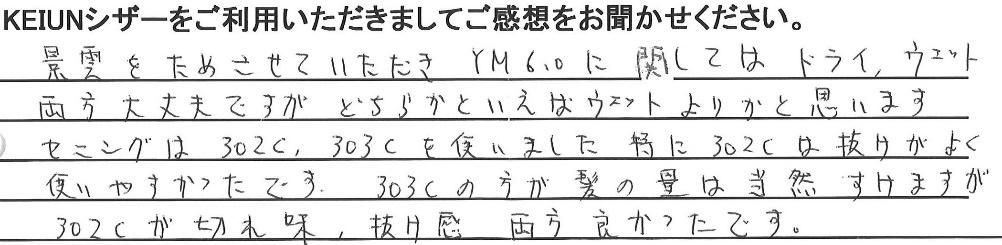 KEIUNシザーをご利用いただきましてご感想をお聞かせください。
景雲をためさせていただき YM6.0に関してはドライ,ウェット
両方大丈夫ですが どちらかといえばウェットよりかと思います
セニングは 302C, 303Cを使いました 特に302Cは抜けがよく
使いやすかったです. 303Cの方が髪の量は当然すけますが
302Cが切れ味,抜け感 両方良かったです。